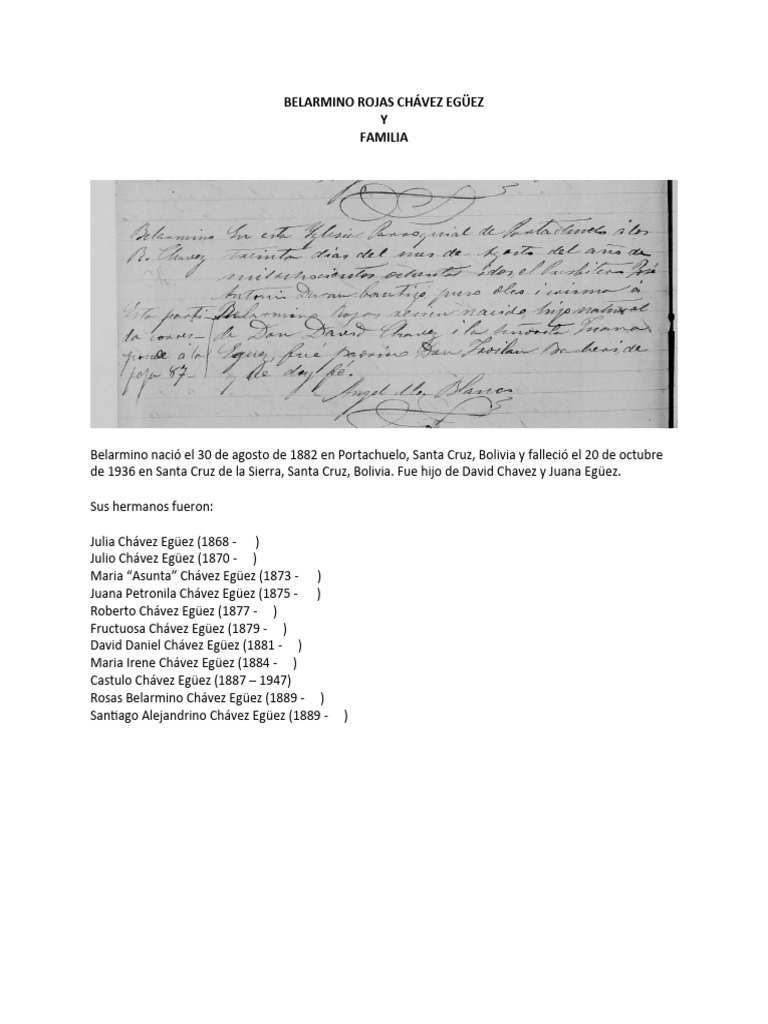 BELARMINO ROJAS CHÁVEZ EGÜEZ
Y
FAMILIA
Belarmino En esta Yglesia Parroquial de Portachuelo á los
R. Chavez treinta dias del mes de Agosto del año de
mil ochocientos ochenta i dos, el Presbitero José
Antonio Duran bautizó, puso oleo i crisma á
Esta parti- Belarmino Rojas recien nacido, hijo natural
da corres- de Don David Chavez i la señorita Juana
ponde á la Eguez, fué padrino Don
foja 87- y de doy fé.
Angel Blanco
Belarmino nació el 30 de agosto de 1882 en Portachuelo, Santa Cruz, Bolivia y falleció el 20 de octubre
de 1936 en Santa Cruz de la Sierra, Santa Cruz, Bolivia. Fue hijo de David Chavez y Juana Egüez.
Sus hermanos fueron:
Julia Chávez Egüez (1868 - )
Julio Chávez Egüez (1870 - )
Maria “Asunta” Chávez Egüez (1873 - )
Juana Petronila Chávez Egüez (1875 - )
Roberto Chávez Egüez (1877 - )
Fructuosa Chávez Egüez (1879 - )
David Daniel Chávez Egüez (1881 - )
Maria Irene Chávez Egüez (1884 - )
Castulo Chávez Egüez (1887 – 1947)
Rosas Belarmino Chávez Egüez (1889 - )
Santiago Alejandrino Chávez Egüez (1889 - )